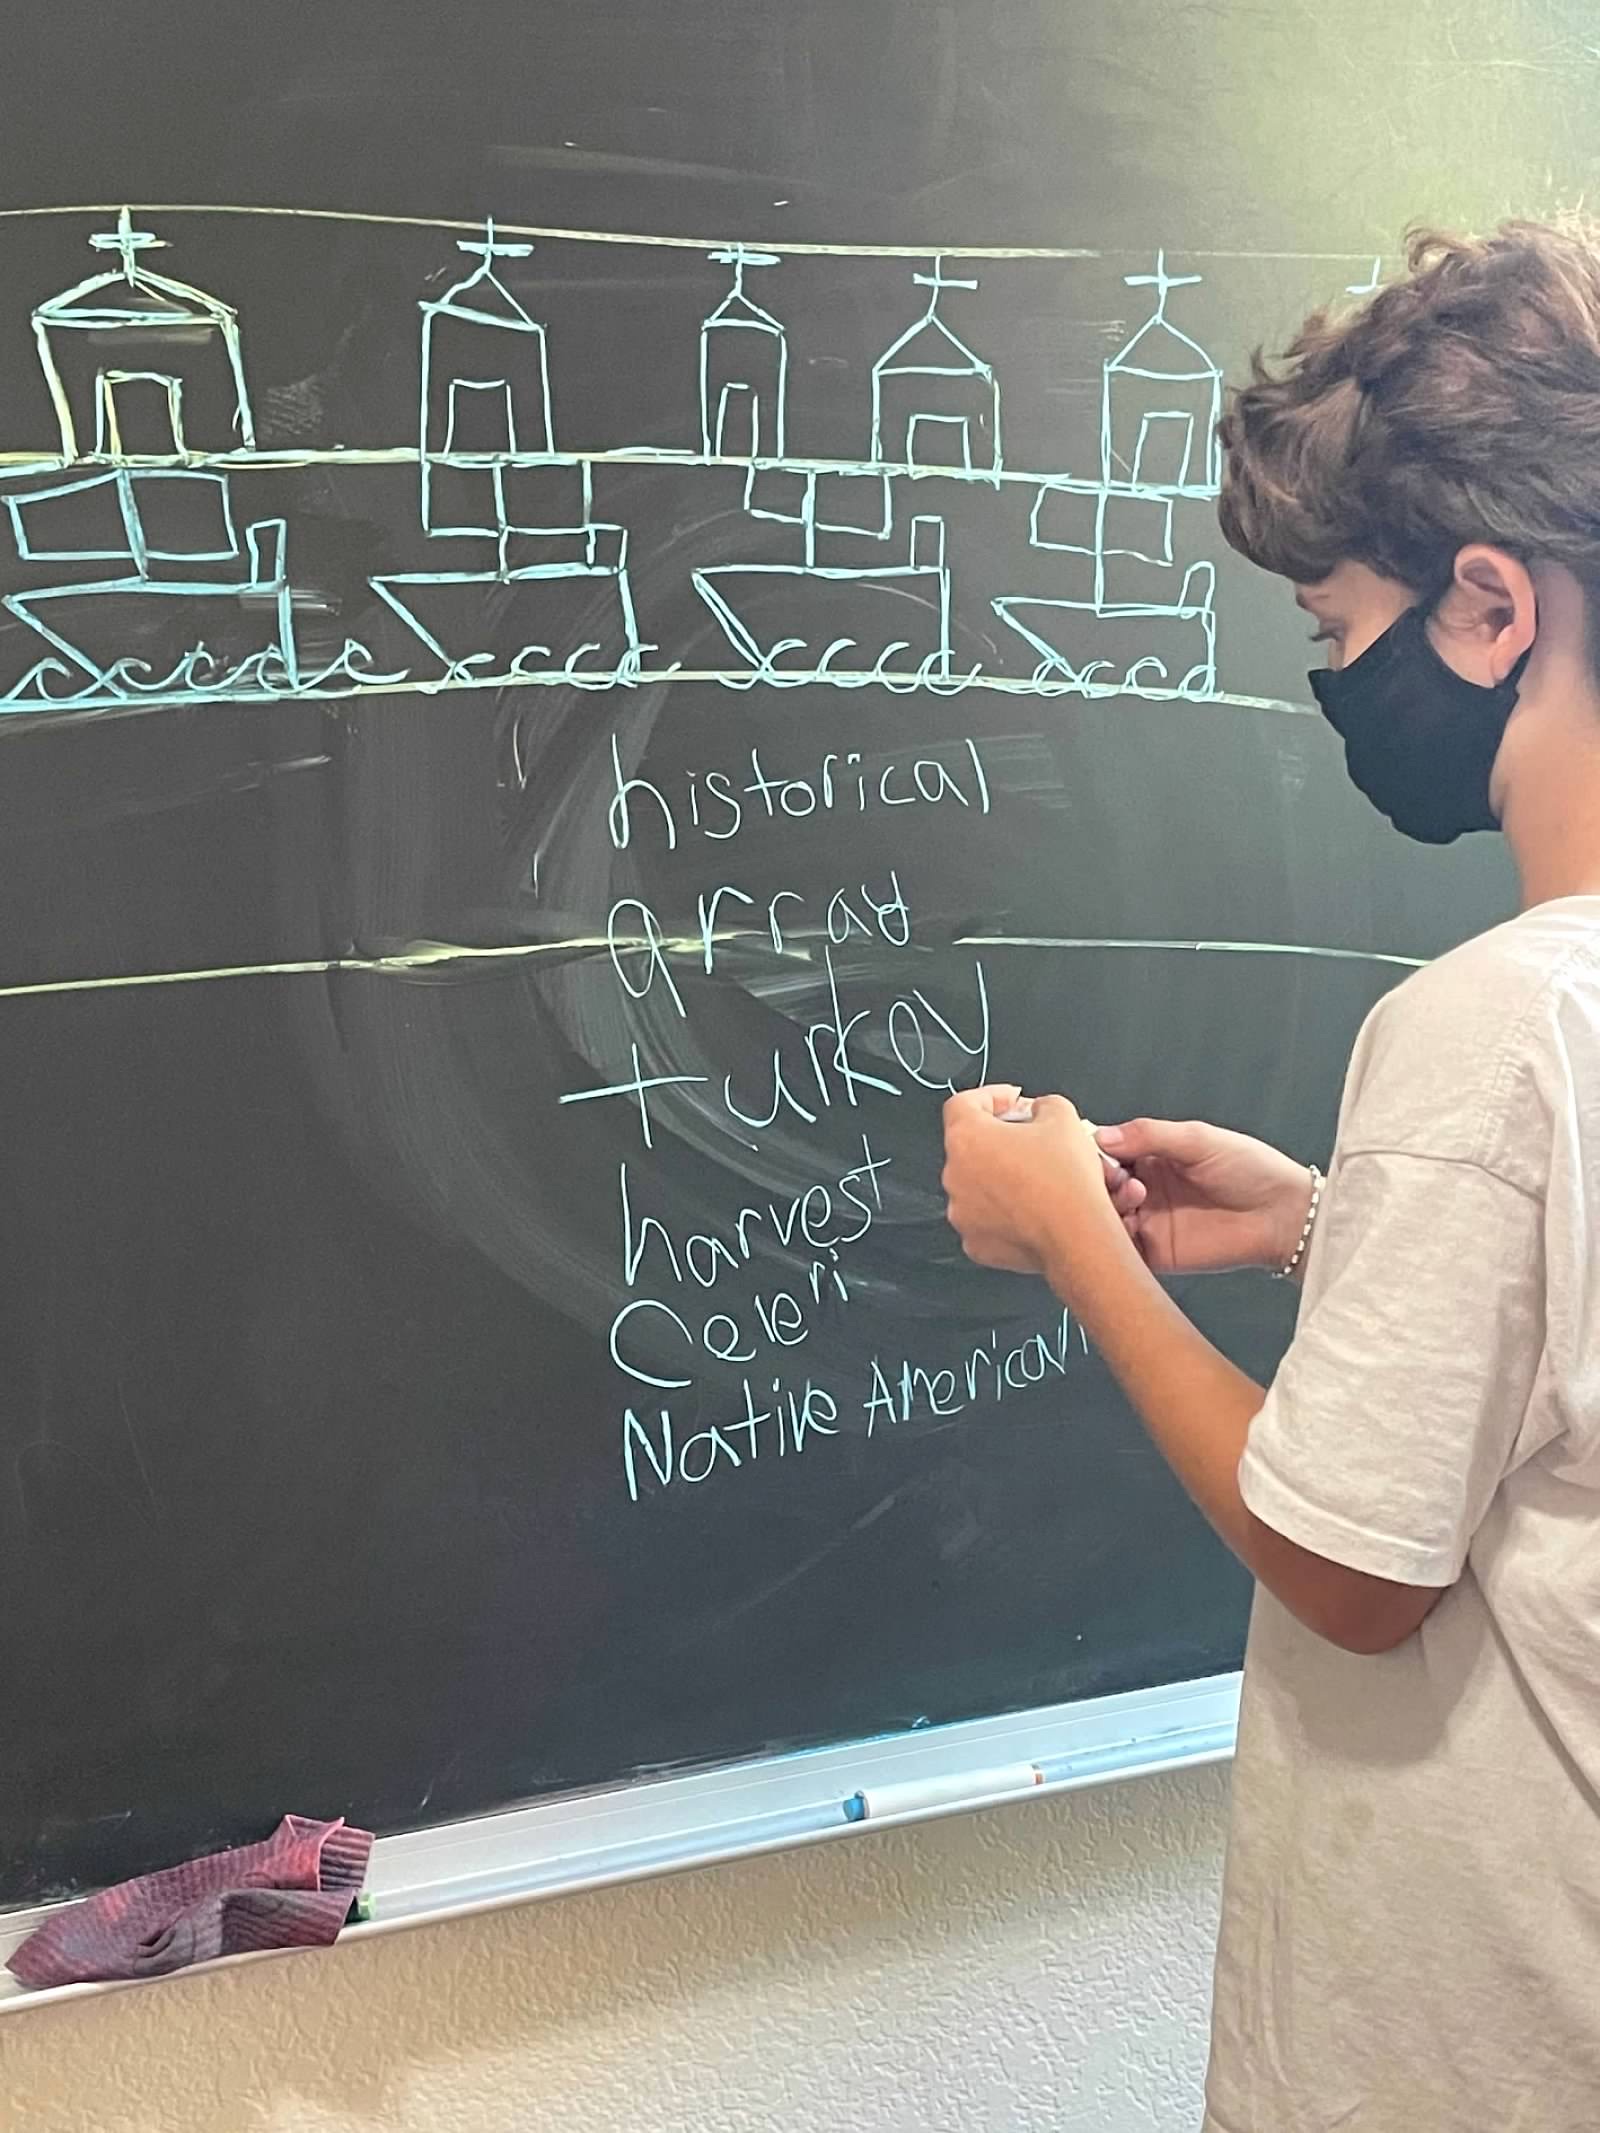 historical
array
turkey
harvest
Celeri
Native American